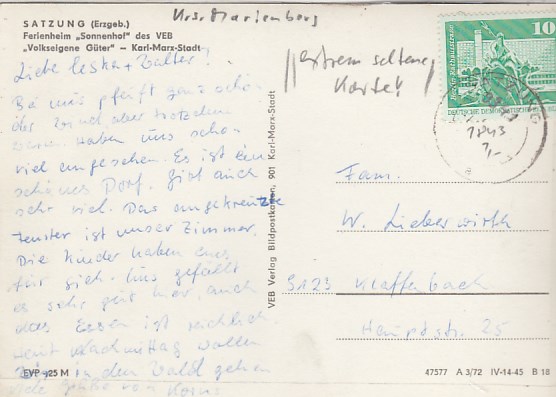 Krs. Marienberg
SATZUNG (Erzgeb.)
Ferienheim „Sonnenhof" des VEB
„Volkseigene Güter" – Karl-Marx-Stadt
extrem seltene
Karte!
10
DEUTSCHE DEMOKRATISCHE
7843
7,-
Liebe + Walter!
Bei uns pfeift ganz schön
der aber trotzdem
haben uns schon
viel angesehen. Es ist ein
schönes Dorf. Gibt auch
sehr viel. Das angekreuzte
Fenster ist unser Zimmer.
Die Kinder haben eines
für sich. Uns gefällt
es sehr gut hier, auch
das Essen ist reichlich
Heut Nachmittag wollen
wir in den Wald gehen
Viele Grüße von
Fam.
W. Lieberwirth
9123 Klaffenbach
Hauptstr. 25
VEB Verlag Bildpostkarten, 901 Karl-Marx-Stadt
EVP –,25 M
47577 A 3/72 IV-14-45 B 18